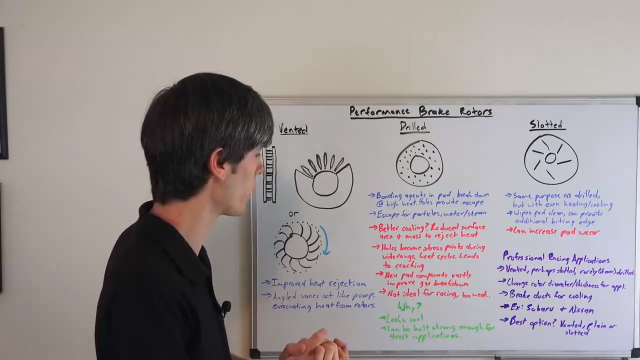 Performance Brake Rotors
Vented
or
→ Improved heat rejection
→ Angled vanes act like pump,
evacuating heat from rotors.
Drilled
→ Bonding agents in pad break down
@ high heat. Holes provide escape
→ Escape for particles, water/steam
→ Better cooling? Reduced surface
area + mass to reject heat
→ Holes become stress points during
wide range heat cycles leads
to cracking
→ New pad compounds vastly
improve gas breakdown
→ Not ideal for racing, too weak.
Why?
→ Looks cool
→ Can be built strong enough for
street applications.
Slotted
→ Same purpose as drilled,
but with even heating/cooling
→ Wipes pad clean, can provide
additional biting edge
→ Can increase pad wear
Professional Racing Applications
→ Vented, perhaps slotted, rarely drilled
→ Change rotor diameter/thickness for appl.
→ Brake ducts for cooling
→ Ex: Subaru + Nissan
→ Best option? Vented, plain or
slotted